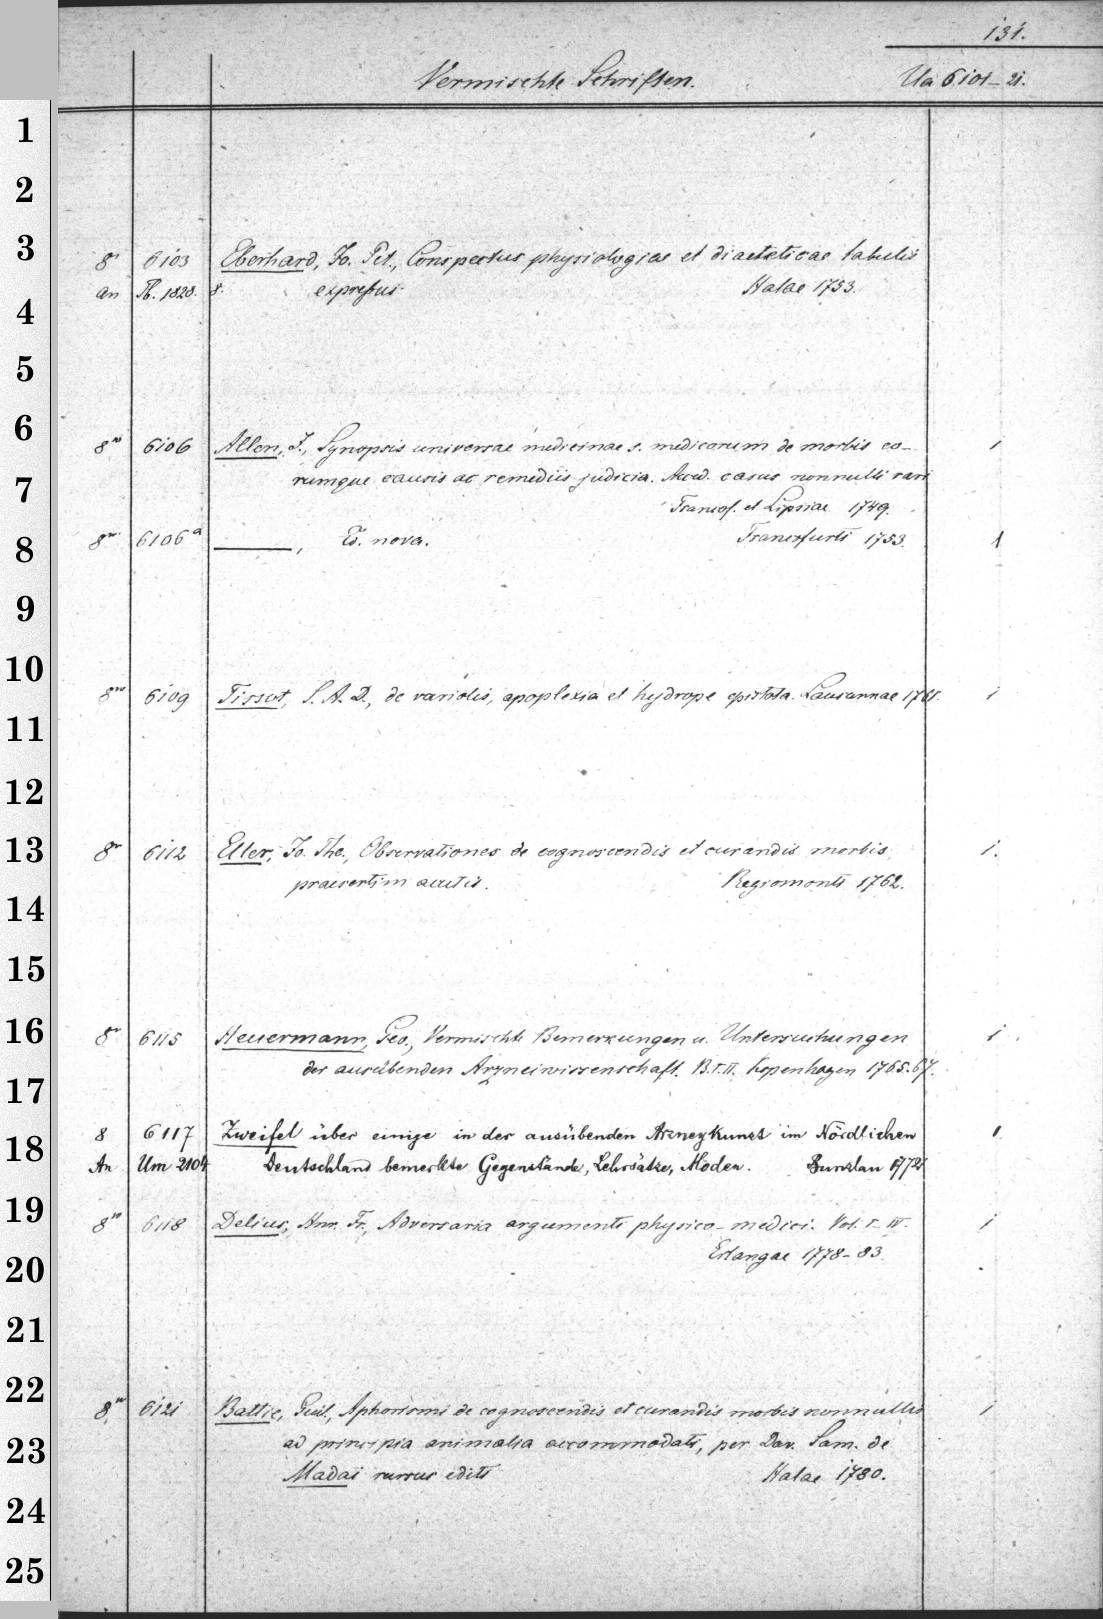 131.
Vermischte Schriften. Ua 6101-21.
1
2
3
8° 6103 Eberhard, Jo. Pet., Conspectus physiologiae et diaeteticae tabulis
an 1828. 8. expressus. Halae 1753.
4
5
6
8vo 6106 Allen, J., Synopsis universae medicinae s. medicorum de morbis eo- 1
7
rumque causis ac remediis judicia. Acced. casus nonnulli rari
Francof. et Lipsiae 1749.
8
8vo 6106a ———, Ed. nova. Francofurti 1753. 1
9
10
8vo 6109 Tissot, S. A. D., de variolis, apoplexia et hydrope epistola. Lausannae 1761. 1
11
12
13
8vo 6112 Eller, Jo. The., Observationes de cognoscendis et curandis morbis, 1.
praesertim acutis. Regiomonti 1762.
14
15
16
8vo 6115 Heuermann, Geo., Vermischte Bemerkungen u. Untersuchungen 1
der ausübenden Arzneiwissenschaft. B. I. II. Kopenhagen 1765-67.
17
8 6117 Zweifel über einige in der ausübenden Arzneykunst im Nördlichen 1
18
An Um 2104 Deutschland bemerkte Gegenstände, Lehrsätze, Moden. Bunzlau 1772
19
8vo 6118 Delius, Hnr. Fr., Adversaria argumenti physico-medici. Vol. I-IV. 1
Erlangae 1778-83.
20
21
22
8vo 6121 Battie, Guil., Aphorismi de cognoscendis et curandis morbis nonnullis 1
23
ad principia animalia accommodati, per Dav. Sam. de
Madai rursus editi Halae 1780.
24
25